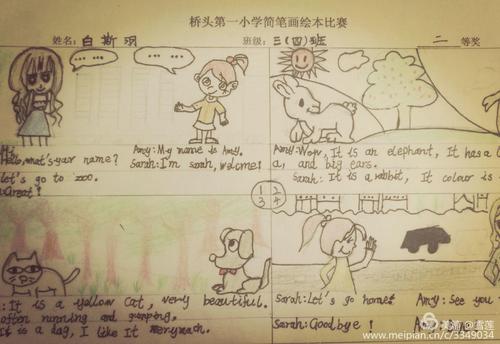 桥头第一小学简笔画绘本比赛
姓名：白斯羽 班级：三（四）班 二 等奖
Hi
Hello, what's your name?
Let's go to zoo.
Great!
Amy: My name is Amy.
Sarah: I'm sarah, welcme!
Amy: Wow, It is an elephant, It has a l
a, and big ears.
Sarah: It is a rabbit, It colour is
① ②
3 4
: It is a yollow cat, very beautiful.
often running and gumping.
It is a dag, I like It
Sarah: Let's go home! Amy: See you
Sarah: Goodbye!
Amy: Bye
美篇 @雪莲
www.meipian.cn/c/3349034